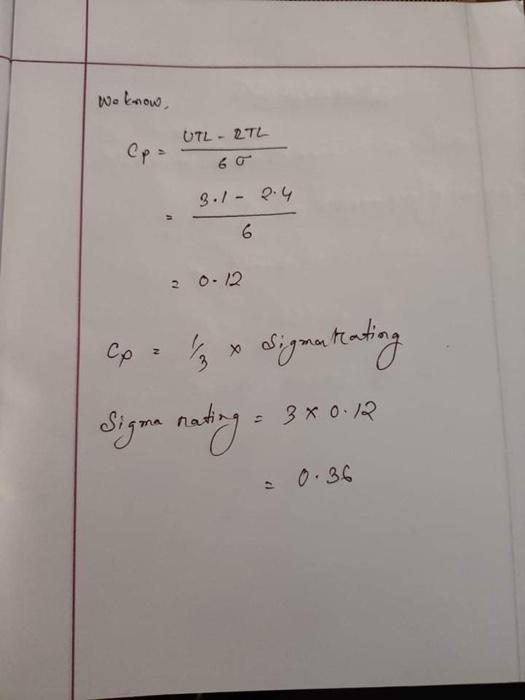 We know,
Cp = UTL - LTL / 6σ
= 3.1 - 2.4 / 6
= 0.12
Cp = 1/3 × Sigma Rating
Sigma rating = 3 × 0.12
= 0.36